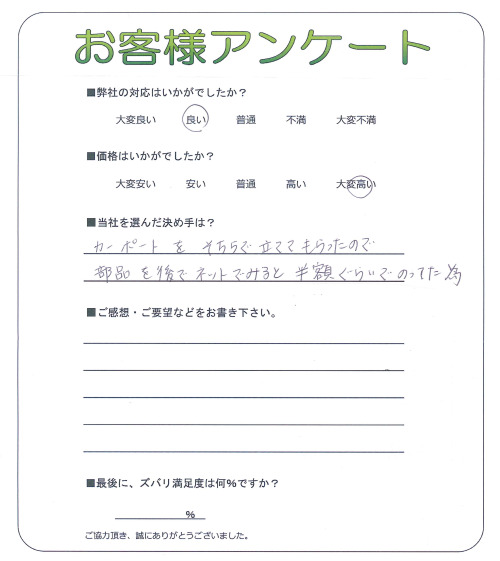 お客様アンケート
■弊社の対応はいかがでしたか？
大変良い 良い 普通 不満 大変不満
■価格はいかがでしたか？
大変安い 安い 普通 高い 大変高い
■当社を選んだ決め手は？
カーポートを そちらで立ててもらったので
部品を後でネットでみると 半額ぐらいでのってた為
■ご感想・ご要望などをお書き下さい。
■最後に、ズバリ満足度は何%ですか？
%
ご協力頂き、誠にありがとうございました。